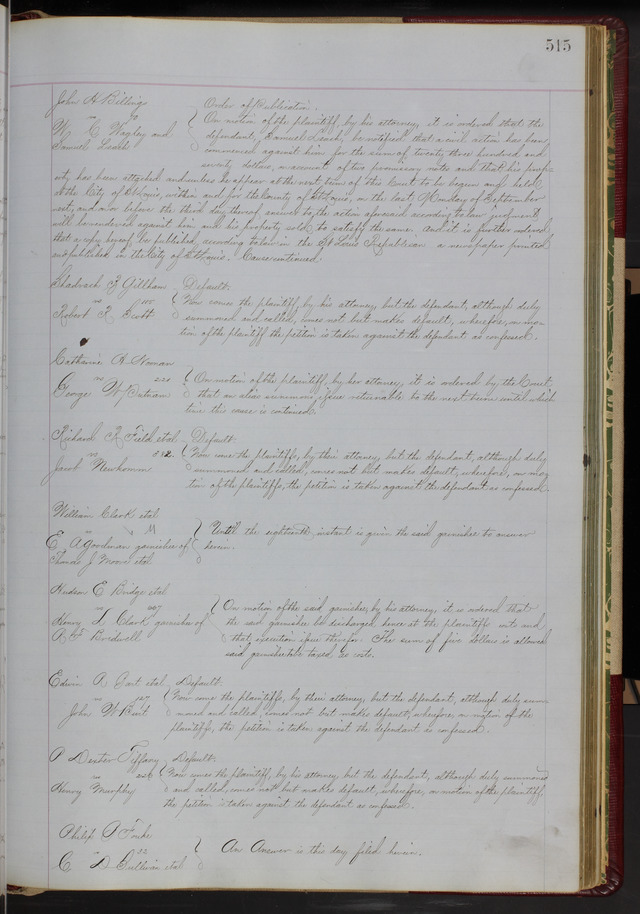 515
John H Billings
vs
H C Wagley and
Samuel Leach
Order of Publication.
On motion of the plaintiff, by his attorney, it is ordered that the
defendant, Samuel Leach, be notified that a civil action has been
commenced against him for the sum of twenty three hundred and
seventy dollars, on account of two promissory notes and that his prop-
erty has been attached and unless he appear at the next term of this Court to be begun and held
at the City of St Louis, within and for the County of St Louis, on the last Monday of September
next, and on or before the third day thereof, answer to the action aforesaid according to law judgment
will be rendered against him and his property sold to satisfy the same. And it is further ordered
that a copy hereof be published, according to law in the St Louis Republican a newspaper printed
and published in the City of St Louis. Cause continued.
Shadrach F Gillham
vs
Robert K Scott
Default.
Now comes the plaintiff, by his attorney, but the defendant, although duly
summoned and called, comes not but makes default, wherefore, on mo-
tion of the plaintiff the petition is taken against the defendant as confessed.
Catharine A Noonan
vs 220
George W Putnam
On motion of the plaintiff, by her attorney, it is ordered by the Court
that an alias summons issue returnable to the next term until which
time this cause is continued.
Richard R Field et al
vs 332
Jacob Newkomm
Default.
Now come the plaintiffs, by their attorney, but the defendant, although duly
summoned and called, comes not but makes default, wherefore, on mo-
tion of the plaintiffs, the petition is taken against the defendant as confessed.
William Clark et al
vs
E A Goodman garnishee of
J Moore et al
Until the eighteenth instant is given the said garnishee to answer
herein.
Hudson E Bridge et al
vs
Henry L Clark garnishee of
Bridwell
On motion of the said garnishee, by his attorney, it is ordered that
the said garnishee be discharged hence at the plaintiffs costs and
that execution issue therefor. The sum of five dollars is allowed
said garnishee to be taxed as costs.
Edwin R et al
vs 127
John W Burt
Default.
Now come the plaintiffs, by their attorney, but the defendant, although duly sum-
moned and called, comes not but makes default, wherefore, on motion of the
plaintiffs, the petition is taken against the defendant as confessed.
P Dexter Tiffany
vs
Henry Murphy
Default.
Now comes the plaintiff, by his attorney, but the defendant, although duly summoned
and called, comes not but makes default, wherefore, on motion of the plaintiff,
the petition is taken against the defendant as confessed.
Philip
vs 22
C D Sullivan et al
An Answer is this day filed herein.